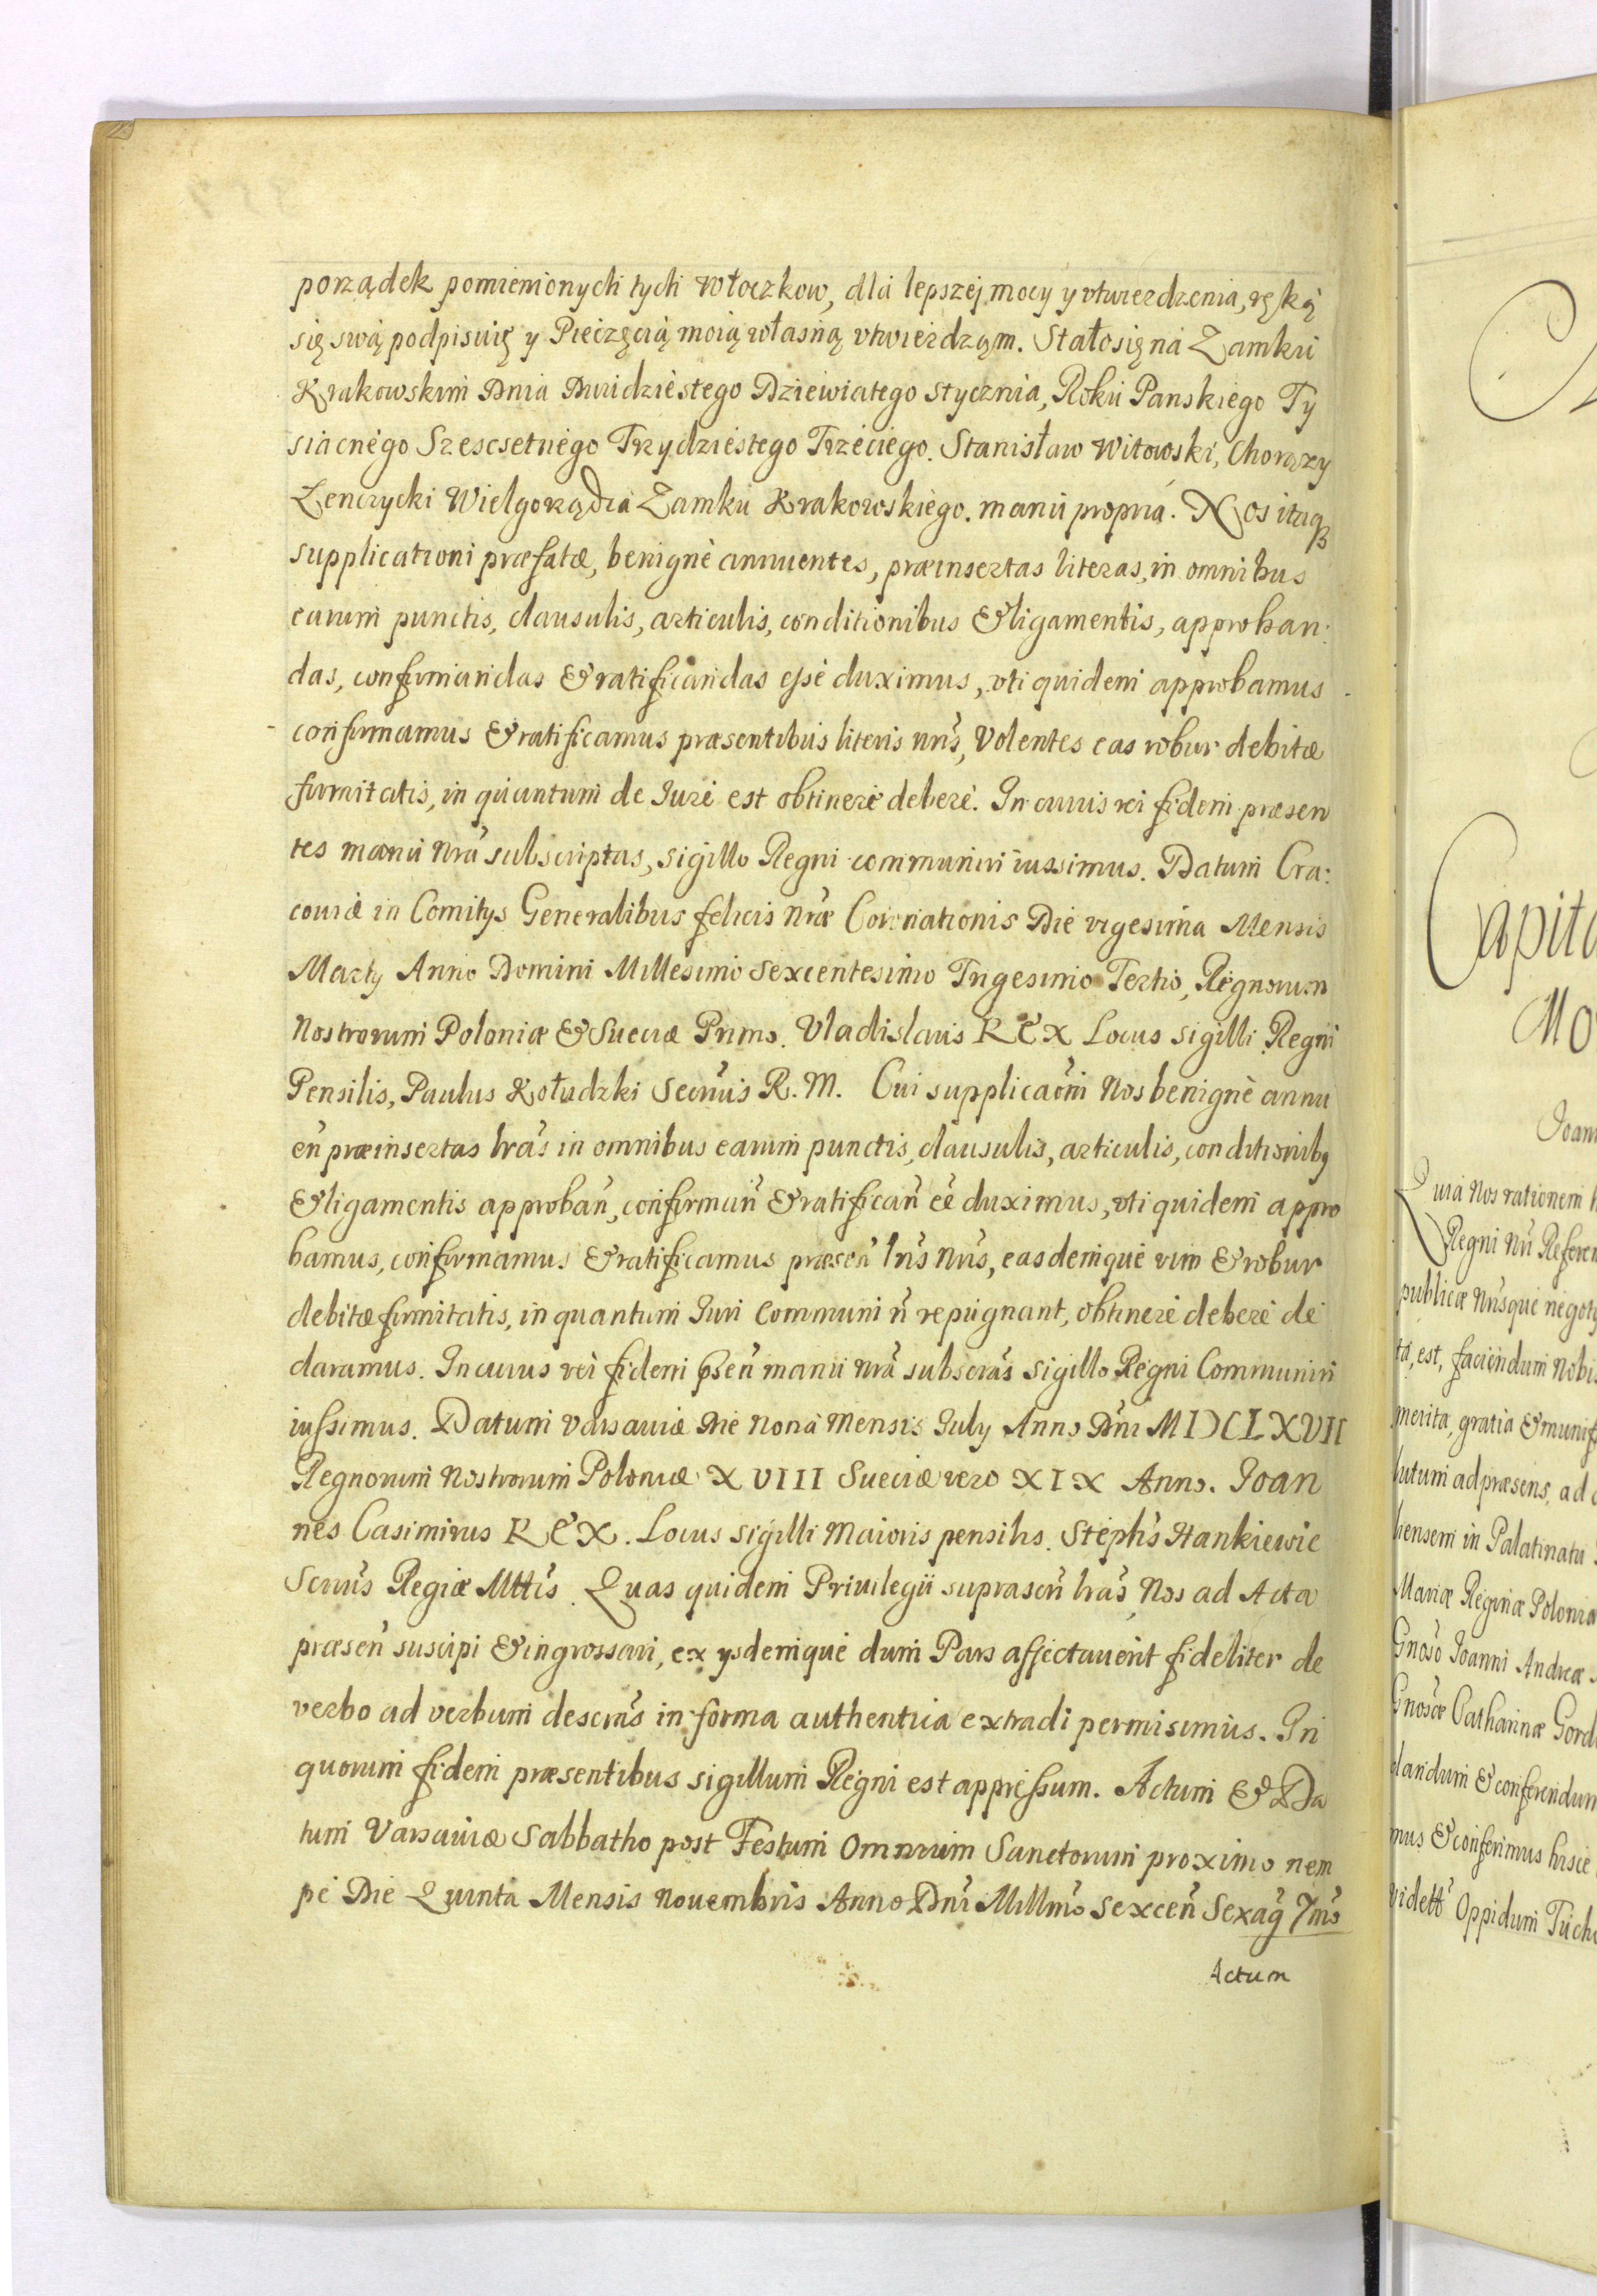 porządek pomienionych tych włoczkow, dla lepszej mocy y vtwierdzenia, ręką
się swą podpisuię y Pieczęcią moią własną vtwierdzam. Stało się na Zamku
Krakowskim Dnia Dwudziestego Dziewiatego stycznia, Roku Panskiego Ty
siacnego Szescsetnego Trzydziestego Trzeciego. Stanisław Witowski, Chorązy
Lenczycki Wielgorządca Zamku Krakowskiego. manu propria. Nos itaqꝫ
supplicationi præfatæ, benignè annuentes, præinsertas literas, in omnibus
earum punctis, clausulis, articulis, conditionibus & ligamentis, approban:
das, confirmandas & ratificandas esse duximus, vti quidem approbamus
confirmamus & ratificamus præsentibus literis nr̃is, Volentes eas robur debitæ
firmitatis, in quantum de Iure est obtinere debere. In cuius rei fidem præsen
tes manu nrã subscriptas, sigillo Regni communiri iussimus. Datum Cra:
couiæ in Comitijs Generalibus felicis nræ Coronationis Die vigesima Mensis
Martij Anno Domini Millesimo sexcentesimo Trigesimo Tertio, Regnorum
Nostrorum Poloniæ & Sueciæ Primo. Vladislaus REX Locus sigilli Regni
Pensilis, Paulus Kołudzki Secrius R. M. Cui supplicaõni Nos benignè annu
eñ præinsertas lrãs in omnibus earum punctis, clausulis, articulis, conditionibꝫ
& ligamentis approbañ, confirmañ & ratificañ eẽ duximus, vti quidem appro
bamus, confirmamus & ratificamus præseñ lr̃is nr̃is, easdemque vim & robur
debitæ firmitatis, in quantum Iuri communi ñ repugnant, obtinere debere de
claramus. In cuius rei fidem p̃señ manu nrã subscrãs sigillo Regni Communiri
iussimus. Datum Varsauiæ Die nona Mensis Iuly Anno Dni MIƆCLXVII
Regnorum Nostrorum Poloniæ XVIII Sueciæ vero XIX Anno. Ioan
nes Casimirus REX. Locus sigilli Maioris pensilis. Stephs Hankiewic
Scrius Regiæ Mttis. Quas quidem Priuilegii suprascrñ lrãs, Nos ad Acta
præseñ suscipi & ingrossari, ex ysdemque dum Pars affectauerit fideliter de
verbo ad verbum descrãs in forma authentica extradi permisimus. In
quorum fidem præsentibus sigillum Regni est appressum. Actum & Da
tum Varsauiæ Sabbatho post Festum Omnium Sanctorum proximo nem
pe Die Quinta Mensis Nouembris Anno Dni Millmo sexceñ Sexag̃ 7mo
Actum
Capita
Mo
Ioan
Quia Nos rationem h
Regni Nr̃i Referen
publicæ Nr̃isque negoty
ta, est, faciendum Nobis
merita, gratia & munif
lutum ad præsens, ad
liensem in Palatinatu
Mariæ Reginæ Polonia
Gnoso Ioanni Andreæ
Gnosæ Catharinæ Gord
dandum & conferendum
mus & conferimus hisce
vidett Oppidum Tucho